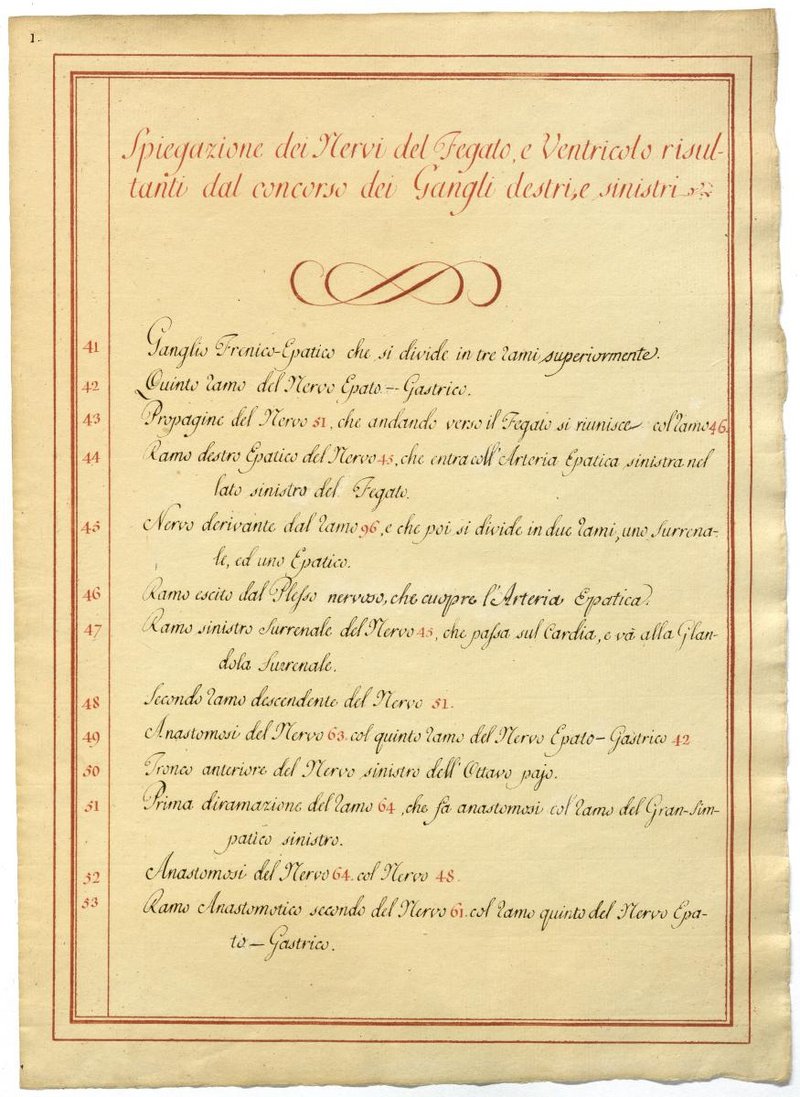 1.
Spiegazione dei Nervi del Fegato, e Ventricolo risul-
tanti dal concorso dei Gangli destri, e sinistri
41 Ganglio Frenico-Epatico che si divide in tre rami superiormente.
42 Quinto ramo del Nervo Epato-Gastrico.
43 Propagine del Nervo 51, che andando verso il Fegato si riunisce col ramo 46.
44 Ramo destro Epatico del Nervo 45, che entra coll'Arteria Epatica sinistra nel
lato sinistro del Fegato.
45 Nervo derivante dal ramo 96, e che poi si divide in due rami, uno Surrena-
le, ed uno Epatico.
46 Ramo escito dal Plesso nervoso, che cuopre l'Arteria Epatica.
47 Ramo sinistro Surrenale del Nervo 45, che passa sul Cardia, e và alla Glan-
dola Surrenale.
48 Secondo ramo descendente del Nervo 51.
49 Anastomosi del Nervo 63. col quinto ramo del Nervo Epato-Gastrico 42
50 Tronco anteriore del Nervo sinistro dell'Ottavo pajo.
51 Prima diramazione del ramo 64, che fà anastomosi col ramo del Gran-Sim-
patico sinistro.
52 Anastomosi del Nervo 64. col Nervo 48.
53 Ramo Anastomotico secondo del Nervo 61. col ramo quinto del Nervo Epa-
to-Gastrico.